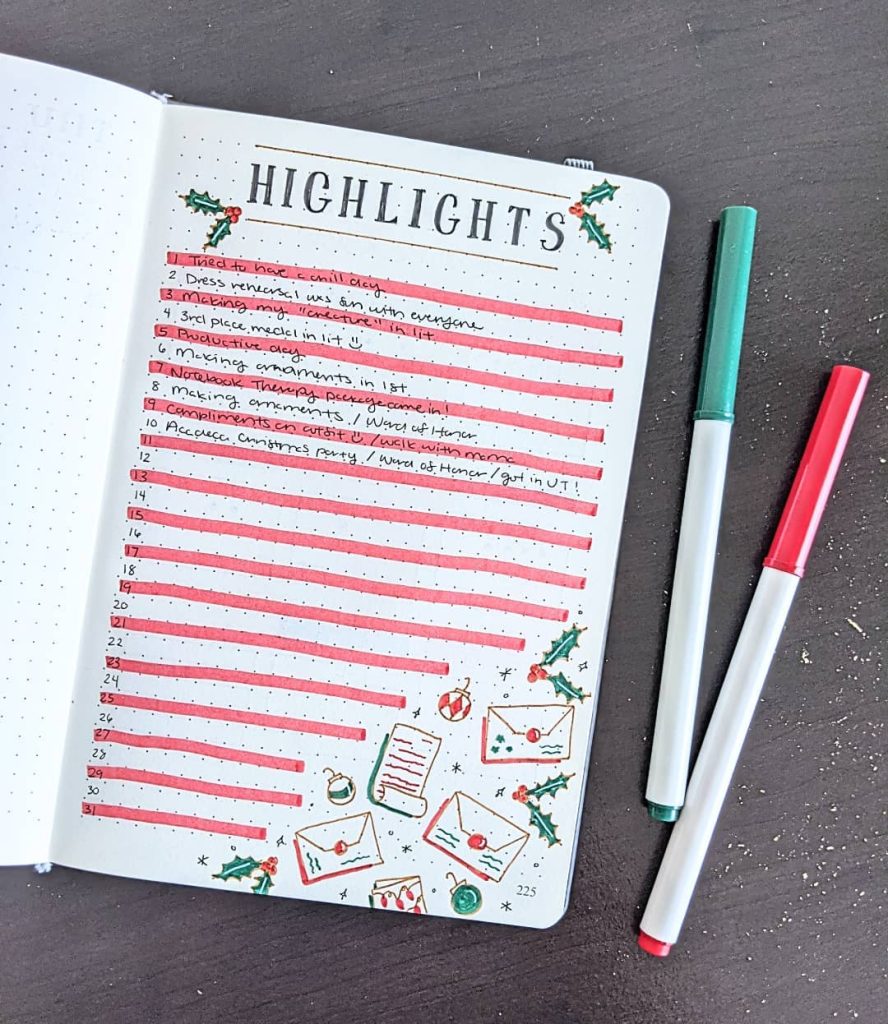 HIGHLIGHTS
1. Tried to have a chill day
2 Dress rehearsal was fun with everyone
3. Making my "creature" in lit
4. 3rd place medal in lit
5. Productive day
6. Making ornaments in 1st
7. Notebook Therapy package came in!
8. Making ornaments / Word of Honor
9. Compliments on outfit / walk with mama
10. Acadeca Christmas party / Word of Honor / got in UT!
11
12
13
14
15
16
17
18
19
20
21
22
23
24
25
26
27
28
29
30
31
225